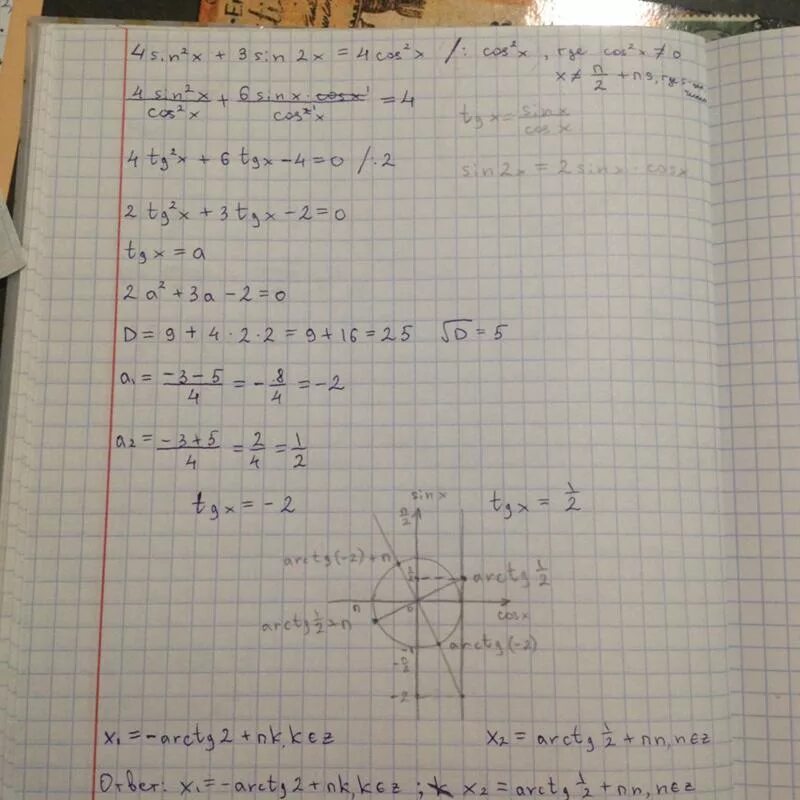 4 sin²x + 3 sin 2x = 4cos²x /: cos²x, где cos²x ≠ 0
x ≠ п/2 + пs, где
4 sin²x/cos²x + 6 sinx · cosx/cos²x = 4
tgx = sinx/cosx
4 tg²x + 6 tgx − 4 = 0 /:2
sin2x = 2 sinx · cosx
2 tg²x + 3 tgx − 2 = 0
tgx = a
2a² + 3a − 2 = 0
D = 9 + 4 · 2 · 2 = 9 + 16 = 25 √D = 5
a₁ = −3 − 5/4 = −8/4 = −2
a₂ = −3 + 5/4 = 2/4 = 1/2
tgx = −2
sinx
tgx = 1/2
п/2
arctg(−2)+п
1/2
arctg 1/2
п
0
cosx
arctg 1/2 + п
arctg(−2)
−п/2
−2
x₁ = −arctg2 + пk, k∈z
x₂ = arctg 1/2 + пn, n∈z
Ответ: x₁ = −arctg2 + пk, k∈z ; x₂ = arctg 1/2 + пn, n∈z